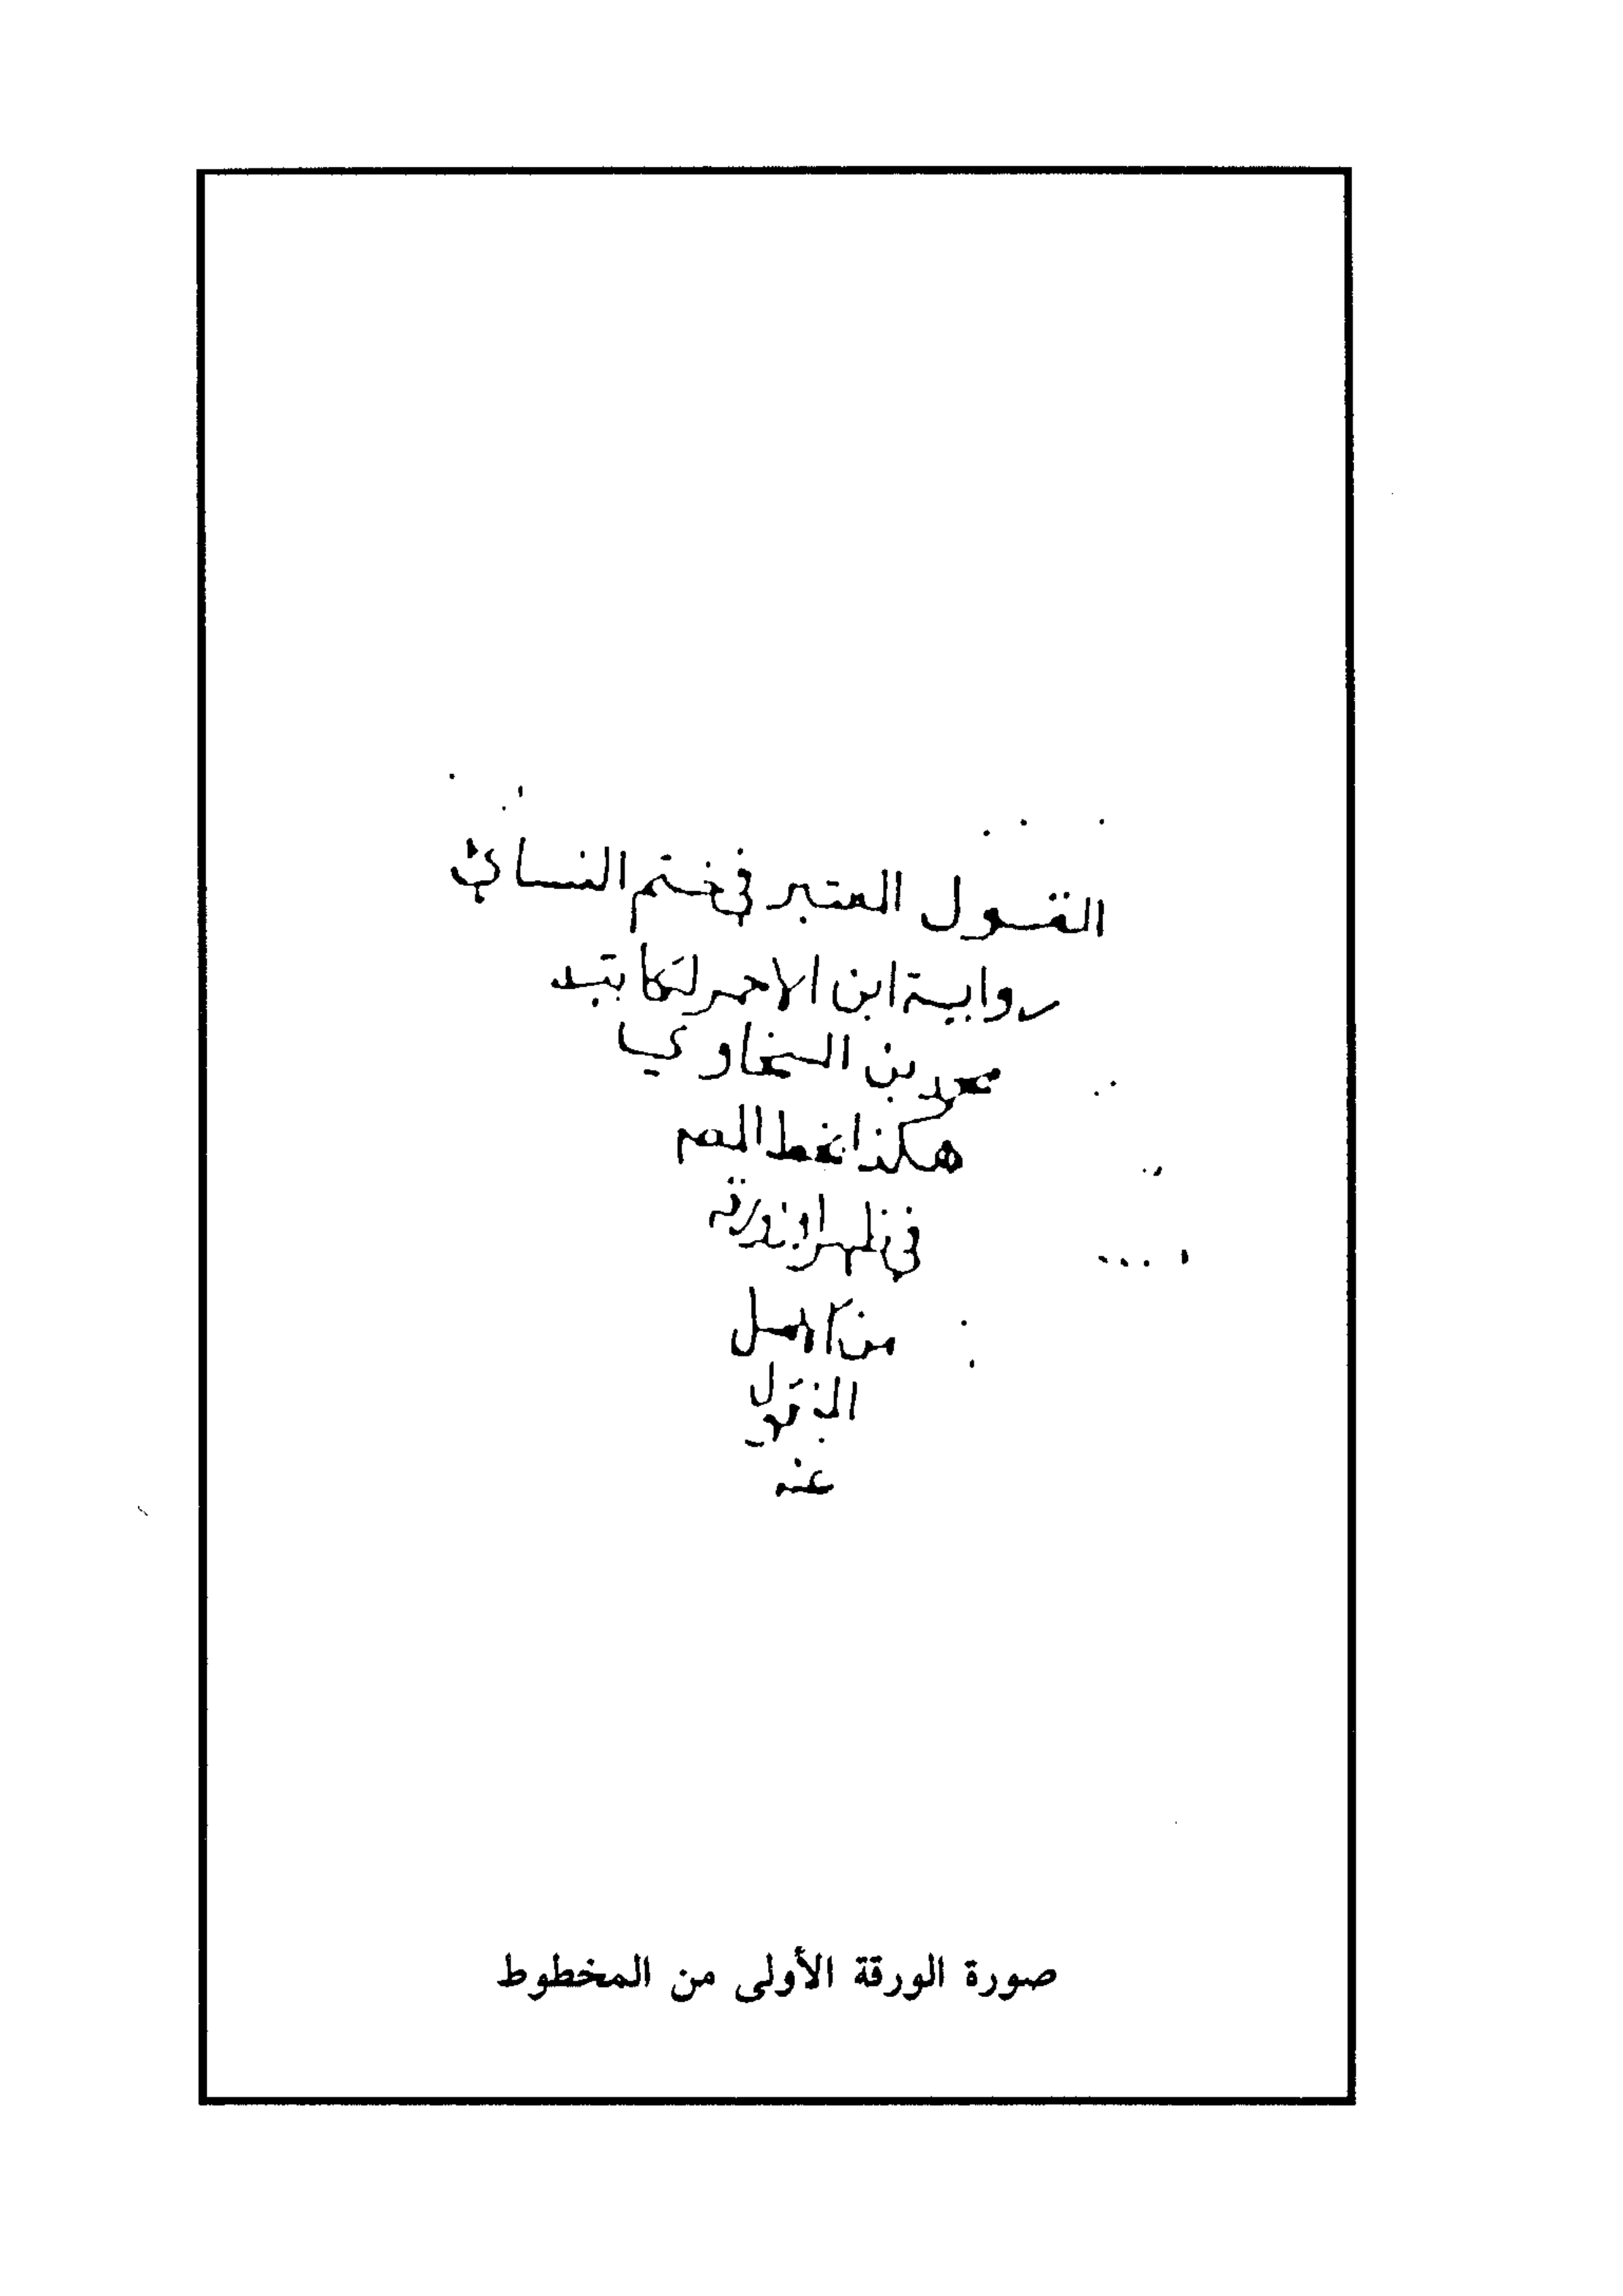 القول المعتبر في ختم النسائي
رواية ابن الاحمر لكاتبه
محمد بن السخاوي
هكذا بخط المص
في ظهر اول ورقة
من الاصل
المنقول
عنه
صورة الورقة الأولى من المخطوط